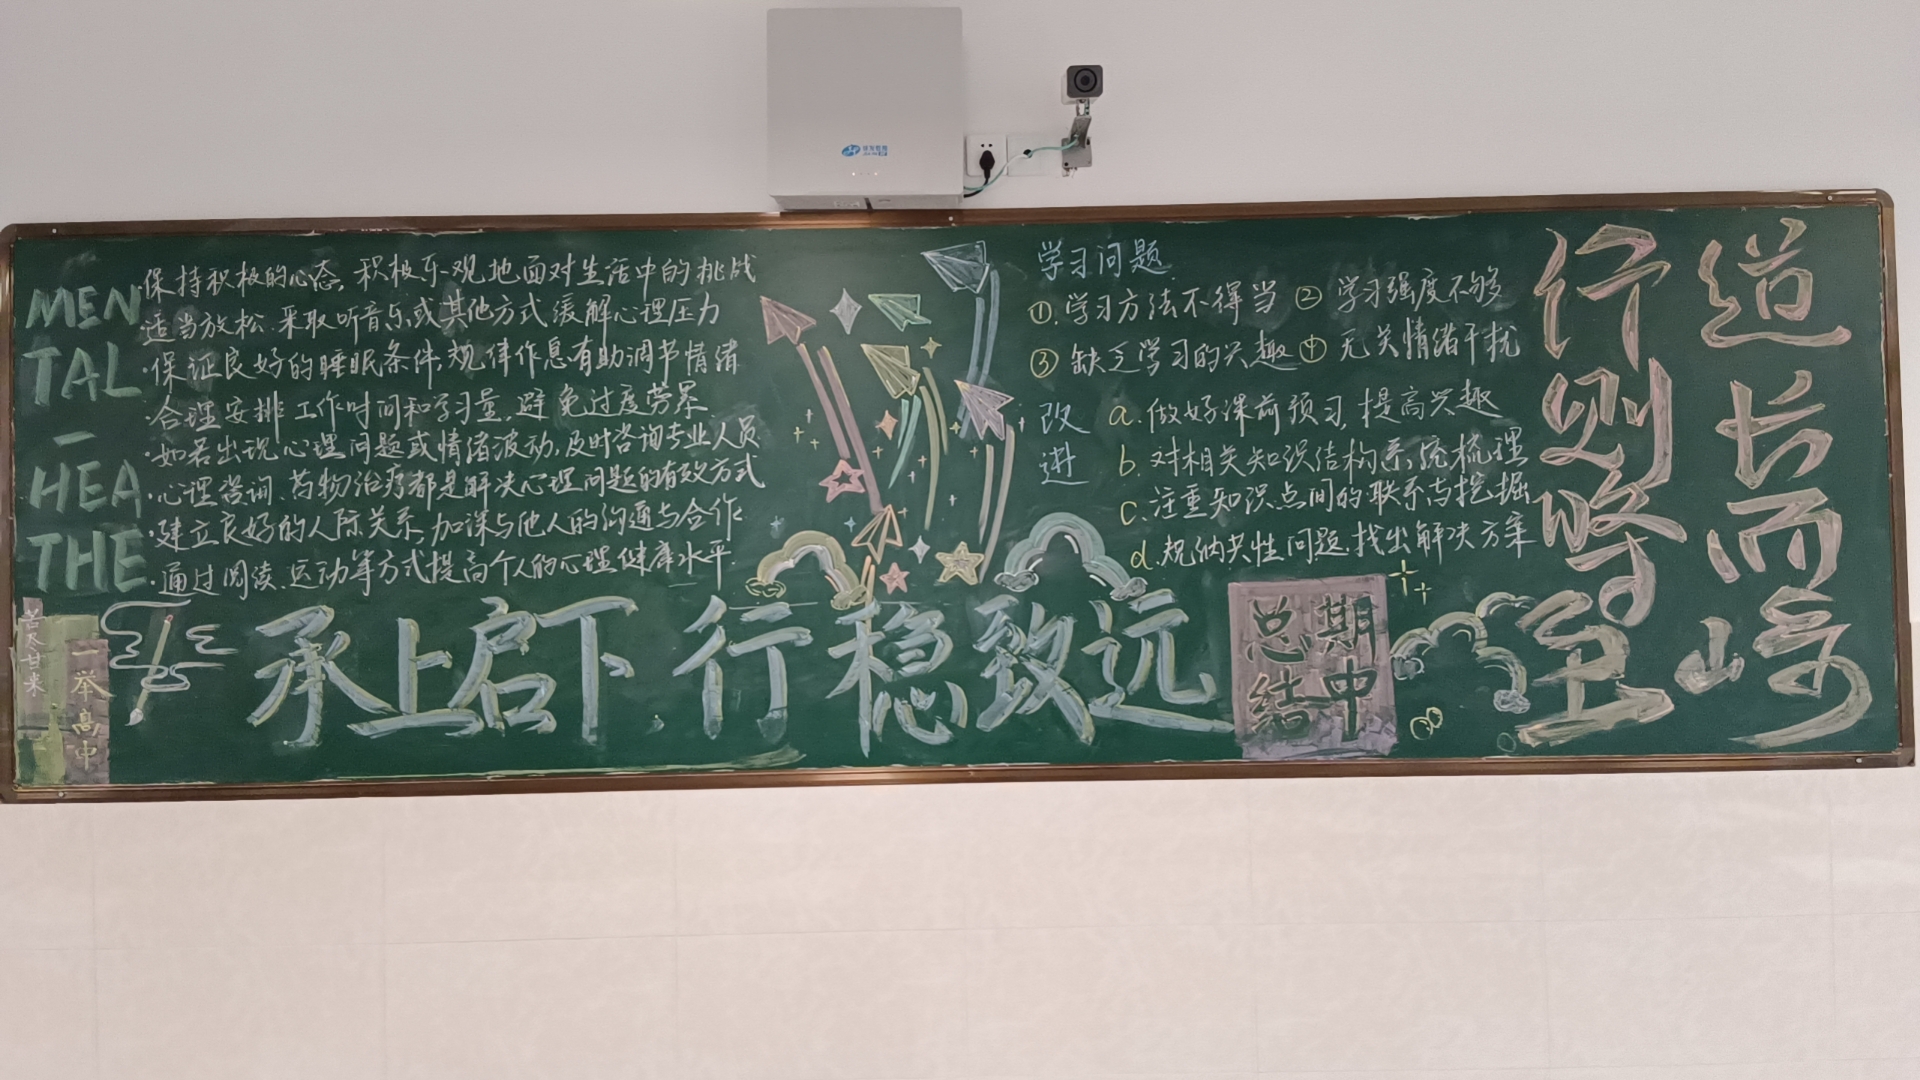 MEN
TAL
—
HEA
THE
·保持积极的心态，积极乐观地面对生活中的挑战
·适当放松，采取听音乐或其他方式缓解心理压力
·保证良好的睡眠条件，规律作息有助调节情绪
·合理安排工作时间和学习量，避免过度劳累
·如若出现心理问题或情绪波动，及时咨询专业人员
·心理咨询、药物治疗都是解决心理问题的有效方式
·建立良好的人际关系，加深与他人的沟通与合作
·通过阅读、运动等方式提高个人的心理健康水平.
苦尽甘来
一举高中
承上启下 行稳致远
学习问题
①.学习方法不得当 ② 学习强度不够
③ 缺乏学习的兴趣 ④ 无关情绪干扰
改进
a.做好课前预习，提高兴趣
b.对相关知识结构系统梳理
c.注重知识点间的联系与挖掘
d.规纳共性问题，找出解决方案
期中
总结
道长而崎
行则必至